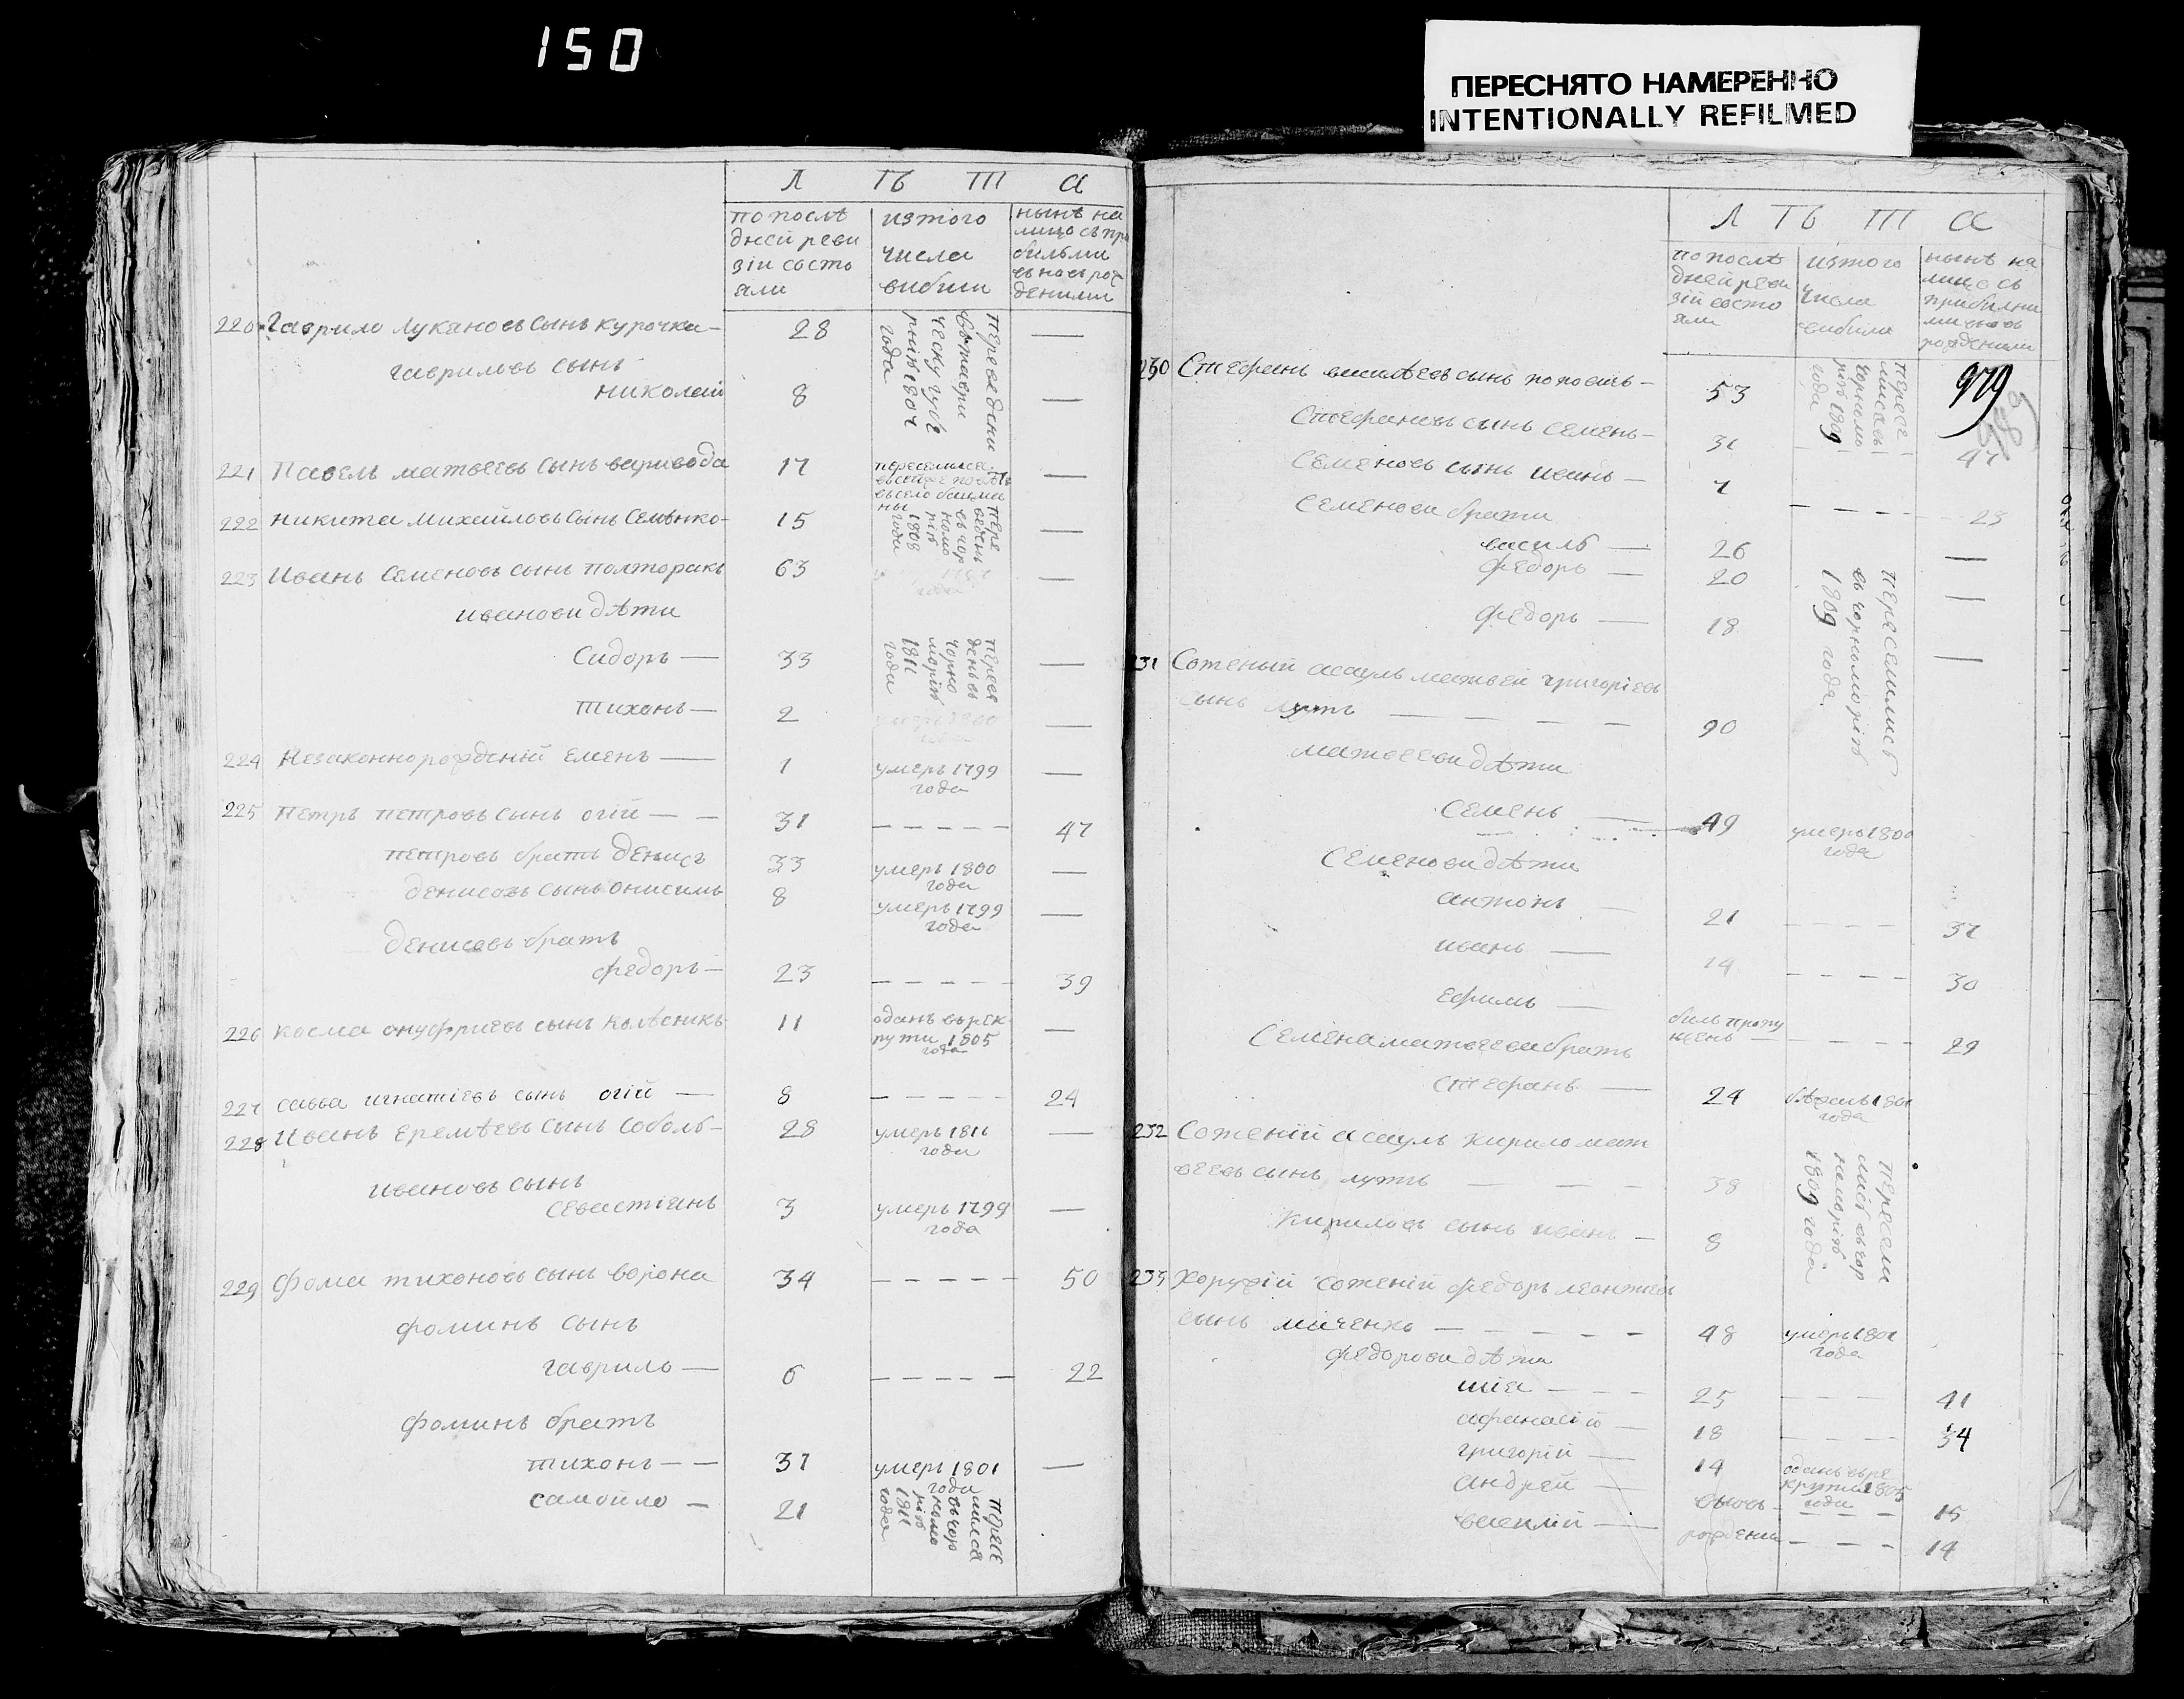 150
ПЕРЕСНЯТО НАМЕРЕННО
INTENTIONALLY REFILMED
Л ТЪ Т а
по послѣ
дней реви
зіи состо
яли
изтого
числа
вибили
нынѣ на
лицо съ при
бильми
въновърож
деними
220. Гаврило Лукановъ сынъ курочка — 28 —
Переведени
въ таври
ческу губе
рнію 1804
года
гавриловъ сынъ
николай 8 —
221 Павелъ матвеевъ сынъ варивода 17 —
222 никита михайловъ сынъ семѣнко — 15 —
пере
веденъ
въ чор
номо
рію
1808
года
223 Иванъ Семеновъ сынъ полторакъ 63 —
года
иванови дѣти
Сидоръ — 33 —
переве
денъ въ
чорно
морію
1811
года
тихонъ — 2 умеръ 1800 —
224 Незаконнорожденій семенъ — 1 умеръ 1799 —
года
225 петръ петровъ сынъ огій — — 31 — — — — — 47
петровъ братъ денисъ 33 умеръ 1800 —
года
денисовъ сынъ онисимъ 8 умеръ 1799 —
года
денисовъ братъ
федоръ — 23 — — — — — 39
226 косма онуфриевъ сынъ колѣсникъ 11 оданъ въ рек —
рути 1805
года
227 савва игнатіевъ сынъ огій — 8 — — — — — 24
228 Иванъ еремѣевъ сынъ соболь — 28 умеръ 1811 —
года
ивановъ сынъ
севастіянъ 3 умеръ 1799 —
года
229 фома тихоновъ сынъ ворона 34 — — — — — 50
фоминъ сынъ
гаврило — 6 — — — — — 22
фоминъ братъ
тихонъ — — 37 умеръ 1801 —
года
самойло — 21
пересе
лился
въ чор
номо
рію
1811
года
Л ТЪ Т а
по послѣ
дней реви
зій состо
яли
изтого
числа
вибили
нынѣ на
лицо съ
прибилни
ми въновъ
рождениm
979
230 Стефанъ василѣевъ сынъ поповичъ — 53
пересе
лились въ
чорномо
рію 1809
года
Стефановъ сынъ семенъ — 31 47
Семеновъ сынъ иванъ — 7 — — — — 23
Семенови брати
василь — 26 —
федоръ — 20 —
федоръ — 18 —
переселились
въ чорноморію
1809 года
231 Сотеный асауль матвей григоріевъ
сынъ лутъ — — — — 90
матвееви дѣти
Семенъ — 49 умеръ 1800
года
Семенови дѣти
антонъ — 21 — — — — 37
иванъ — 14 — — — — 30
ефимъ — билъ пропу
щенъ — — — — — 29
Семена матвеева братъ
стефанъ — 24 бѣжалъ 1801
года
232 Сотеній асауль кирило мат
веевъ сынъ лутъ — — — 38
кириловъ сынъ иванъ — 8
пересели
лисъ въ чор
номорію
1809 года
233 хоружій сотеній федоръ леонтиевъ
сынъ — — — — — 48 умеръ 1801
года
федорови дѣти
илія — — — 25 — — — 41
афанасій — 18 — — — 34
григорій — 14 оданъ въ ре
крути 1805
года
андрей — вновъ — — — — 15
василій — рождени — — — — 14